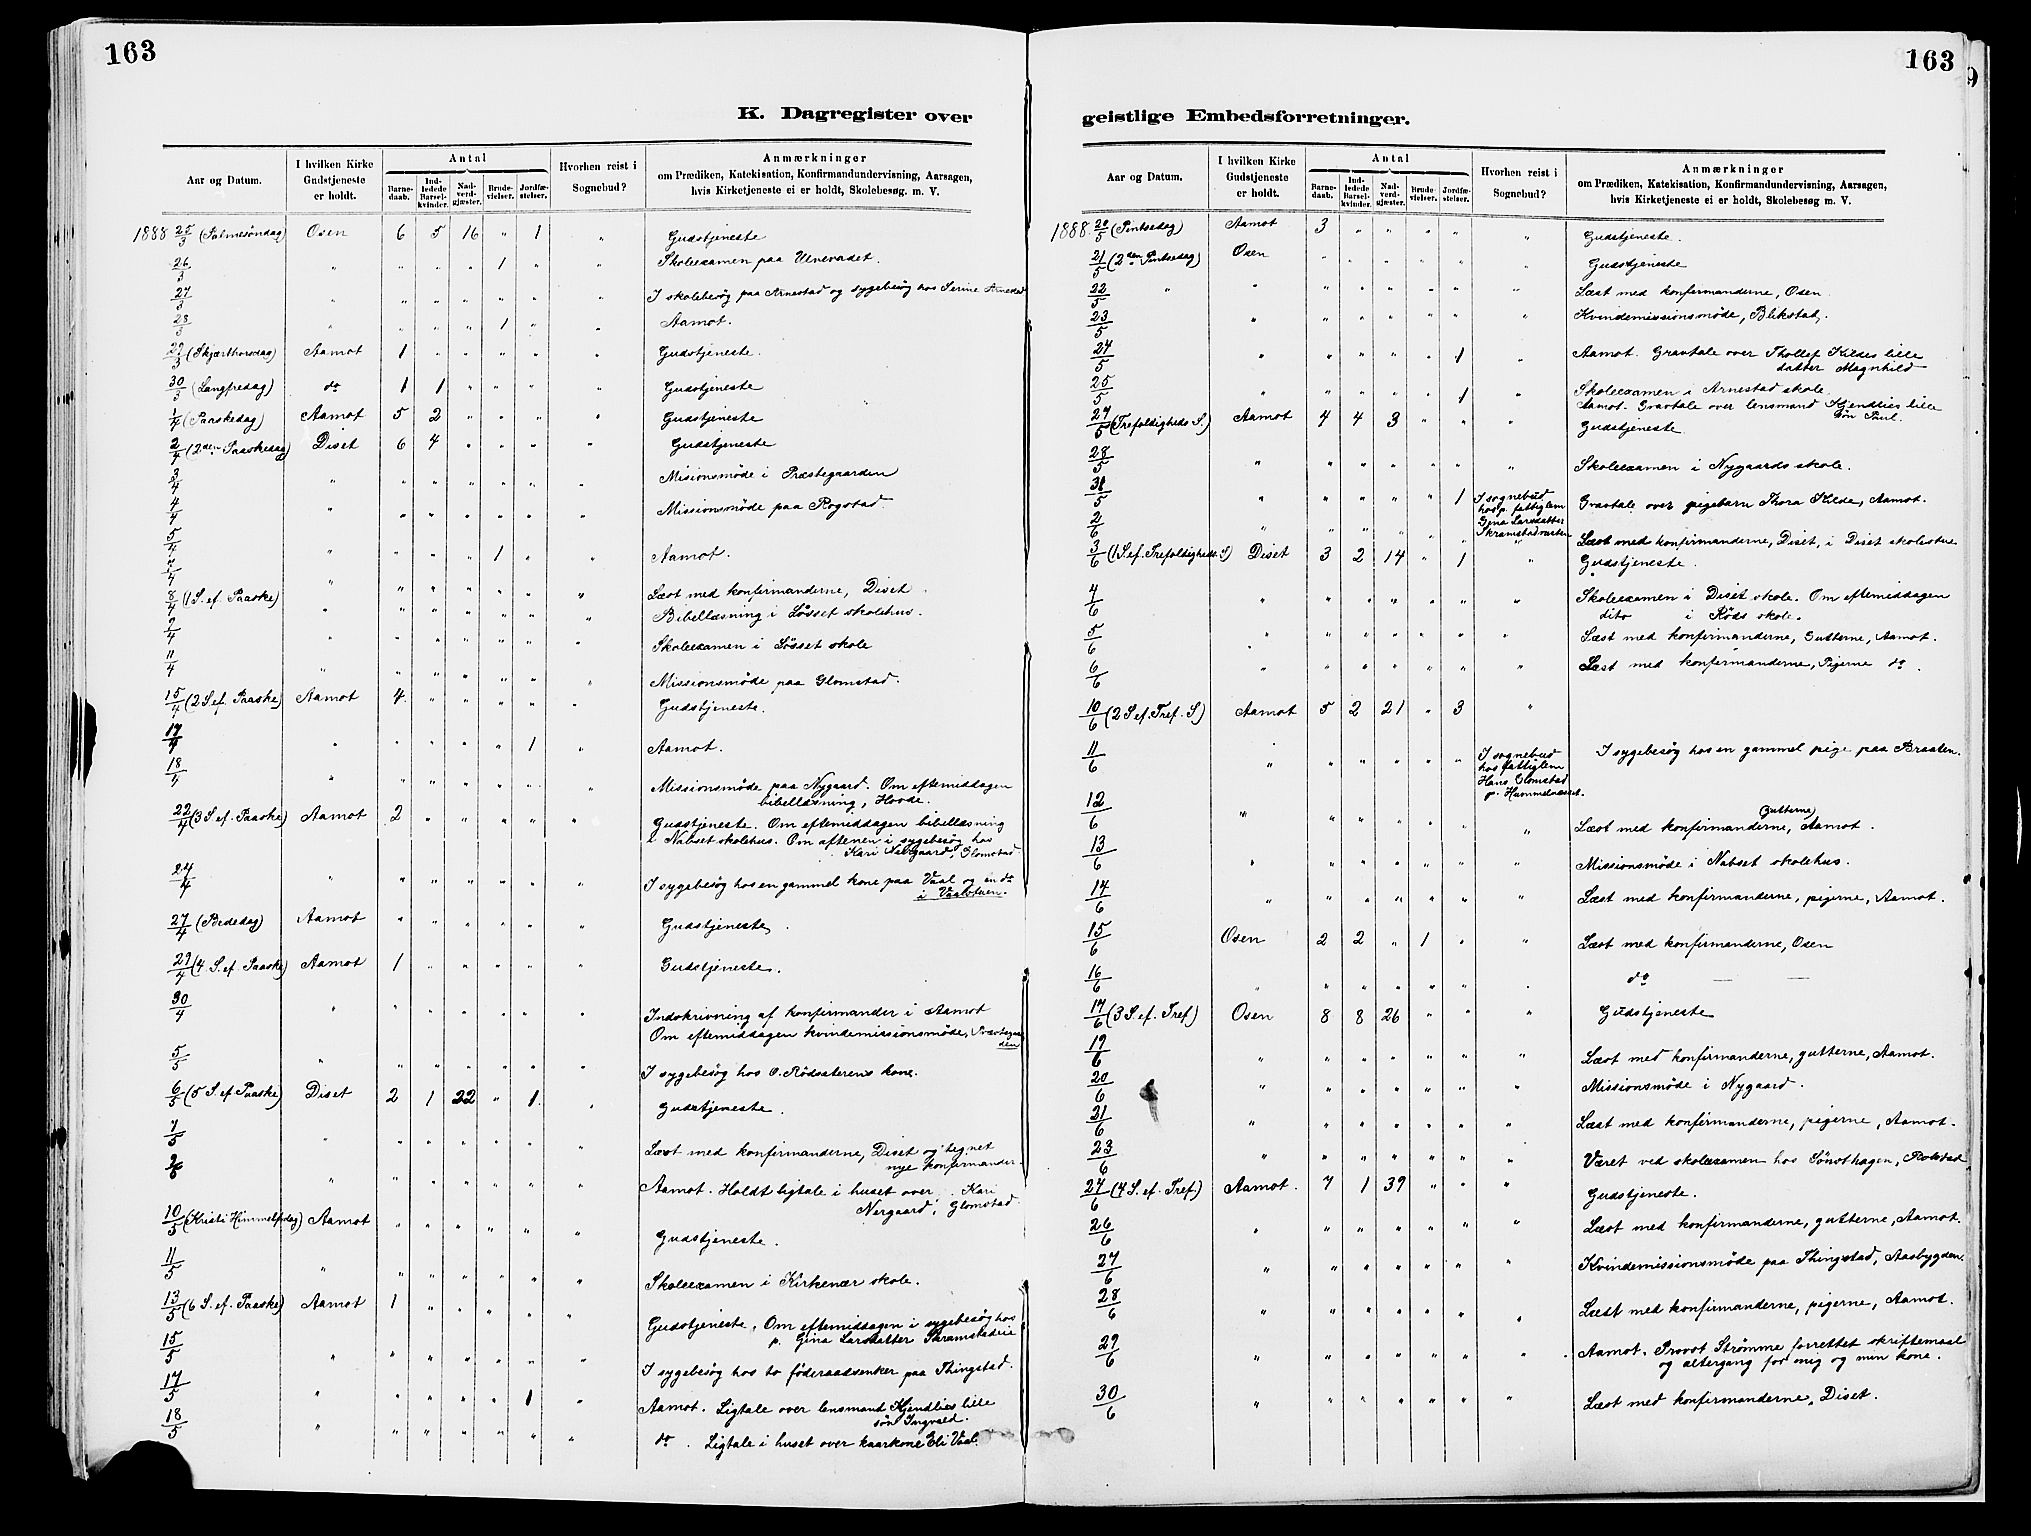 163
K. Dagregister over
Aar og Datum.
I hvilken Kirke Gudstjeneste er holdt.
Antal
Barne-daab.
Ind-ledede Barsel-kvinder.
Nad-verd-gjæster.
Brude-vielser.
Jordfæ-stelser.
Hvorhen reist i Sognebud?
Anmærkninger
om Prædiken, Katekisation, Konfirmandundervisning, Aarsagen,
hvis Kirketjeneste ei er holdt, Skolebesøg m. V.
1888 25/3 (Palmesöndag) Osen 6 5 16 " 1 " Gudstjeneste
26/3 " " " " 1 " " Skoleexamen paa Ulvevadet.
27/3 " " " " " " I skolebesög paa Arnestad og sygebesög hos Serine Arnestad
28/3 " " " " 1 " " Aamot.
29/3 (Skjærthorsdag) Aamot 1 " " " " " Gudstjeneste.
30/3 (Langfredag) do 1 1 " " " " Gudstjeneste
1/4 (Paaskedag) Aamot 5 2 " " " " Gudstjeneste
2/4 (2den Paaskedag) Diset 6 4 " " " " Gudstjeneste
3/4 " " " " " " " Misionsmöde i Præstegaarden
4/4 " " " " " " " Missionsmöde paa Rogstad.
5/4 " " " " 1 " " Aamot.
7/4 " " " " " " " Læst med konfirmanderne, Diset
8/4 (1 S. ef. Paaske) " " " " " " " Bibellæsning i Lösset skolehus.
9/4 " " " " " " " Skoleexamen i Lösset skole
11/4 " " " " " " " Missionsmöde paa Glomstad.
15/4 (2 S. ef. Paaske) Aamot 4 " " " " " Gudstjeneste.
17/4 " " " " " 1 " Aamot.
18/4 " " " " " " " Missionsmöde paa Nygaard. Om eftemiddagen
bibellæsning, Hovde.
22/4 (3 S. ef. Paaske) Aamot 2 " " " " " Gudstjeneste. Om eftemiddagen bibellæsning
i Nabset skolehus. Om aftenen i sygebesög hos
Kari Nergaard, Glomstad
24/4 " " " " " " " I sygebesög hos en gammel kone paa Vaal og en do
i Vaalstuen.
27/4 (Bededag) Aamot " " " " " " Gudstjeneste.
29/4 (4 S. ef. Paaske) Aamot 1 " " " " " Gudstjeneste.
30/4 " " " " " " Indskrivning af konfirmander i Aamot
Om eftemiddagen kvindemissionsmöde, Præstegaar
den
5/5 " " " " " " " I sygebesög hos O. Rödsæterens kone.
6/5 (5 S. ef Paaske) Diset 2 1 22 " 1 " Gudstjeneste.
7/5 " " " " " " " Læst med konfirmanderne, Diset og tegnet
nye konfirmander
" " " " " " " Aamot. Holdt ligtale i huset over Kari
Nergaard, Glomstad
10/5 (Kristi Himmelfsdag) Aamot " " " " " " Gudstjeneste.
11/5 " " " " " " " Skoleexamen i Kirkenær skole.
13/5 (6 S. ef. Paaske) Aamot 1 " " " " " Gudstjeneste. Om eftemiddagen i sygebesög hos
p. Gina Larsdatter
15/5 " " " " " " " I sygebesög hos to föderaadsenker paa Thingstad.
17/5 " " " " " 1 " Aamot. Ligtale over lensmand Kjendlies lille
sön Ingvald.
18/5 " " " " " " " do. Ligtale i huset over kaarkone Eli Vaal
163
geistlige Embedsforretninger.
Aar og Datum.
I hvilken Kirke Gudstjeneste er holdt.
Antal
Barne-daab.
Ind-ledede Barsel-kvinder.
Nad-verd-gjæster.
Brude-vielser.
Jordfæ-stelser.
Hvorhen reist i Sognebud?
Anmærkninger
om Prædiken, Katekisation, Konfirmandundervisning, Aarsagen,
hvis Kirketjeneste ei er holdt, Skolebesøg m. V.
1888. 20/5 (Pintsedag) Aamot 3 " " " " " Gudstjeneste.
21/5 (2den Pintsedag) Osen " " " " " " Gudstjeneste
22/5 " " " " " " " Læst med konfirmanderne, Osen
23/5 " " " " " " " Kvindemissionsmöde, Blikstad.
24/5 " " " " " 1 " Aamot. Gravtale over Thollef Kildes lille
datter Magnhild
25/5 " " " " 1 " Skoleexamen i Arnestad skole.
Aamot. Gravtale over lensmand Kjendlies lille
sön Paul.
27/5 (Trefoldigheds S.) Aamot 4 4 3 " " " Gudstjeneste
28/5 " " " " " " " Skoleexamen i Nygaards skole.
31/5 " " " " " 1 I sognebud
hos p. fattiglem
Gina Larsdatter
Gravtale over pigebarn Thora Kilde, Aamot.
2/6 " " " " " " " Læst med konfirmanderne, Diset, i Diset skolestue
3/6 (1 S. ef. Trefoldigheds S) Diset 3 2 14 " 1 " Gudstjeneste.
4/6 " " " " " " " Skoleexamen i Diset skole. Om eftemiddagen
dito i Röds skole.
5/6 " " " " " " " Læst med konfirmanderne, Gutterne, Aamot.
6/6 " " " " " " " Læst med konfirmanderne, Pigerne do.
10/6 (2 S. ef. Tref. S) Aamot 5 2 21 " 3 "
11/6 " " " " " " I sognebud
hos fattiglem
Hans Glomstad
p. Hummelnæsset.
I sygebesög hos en gammel pige paa Braaten.
12/6 " " " " " " " Læst med konfirmanderne, Gutterne, Aamot.
13/6 " " " " " " " Missionsmöde i Nabset skolehus.
14/6 " " " " " " " Læst med konfirmanderne, pigerne, Aamot.
15/6 Osen 2 2 " 1 " " Læst med konfirmanderne, Osen
16/6 " " " " " " " do — —
17/6 (3 S. ef. Tref) Osen 8 8 26 " " " Gudstjeneste
19/6 " " " " " " " Læst med konfirmanderne, gutterne, Aamot.
20/6 " " " " " " " Missionsmöde i Nygaard.
21/6 " " " " " " " Læst med konfirmanderne, pigerne, Aamot.
23/6 " " " " " " " Været ved skoleexamen hos Sönsthagen, Rokstad
24/6 (4 S. ef. Tref) Aamot. 7 1 39 " " " Gudstjeneste.
26/6 " " " " " " " Læst med konfirmanderne, gutterne, Aamot.
27/6 " " " " " " Kvindemissionsmöde paa Thingstad, Aasbygden.
28/6 " " " " " " " Læst med konfirmanderne, pigerne, Aamot.
29/6 " " " " " " " Aamot. Provst Strömme forrettet skriftemaal
og altergang for mig og min kone.
30/6 " " " " " " " Læst med konfirmanderne, Diset.